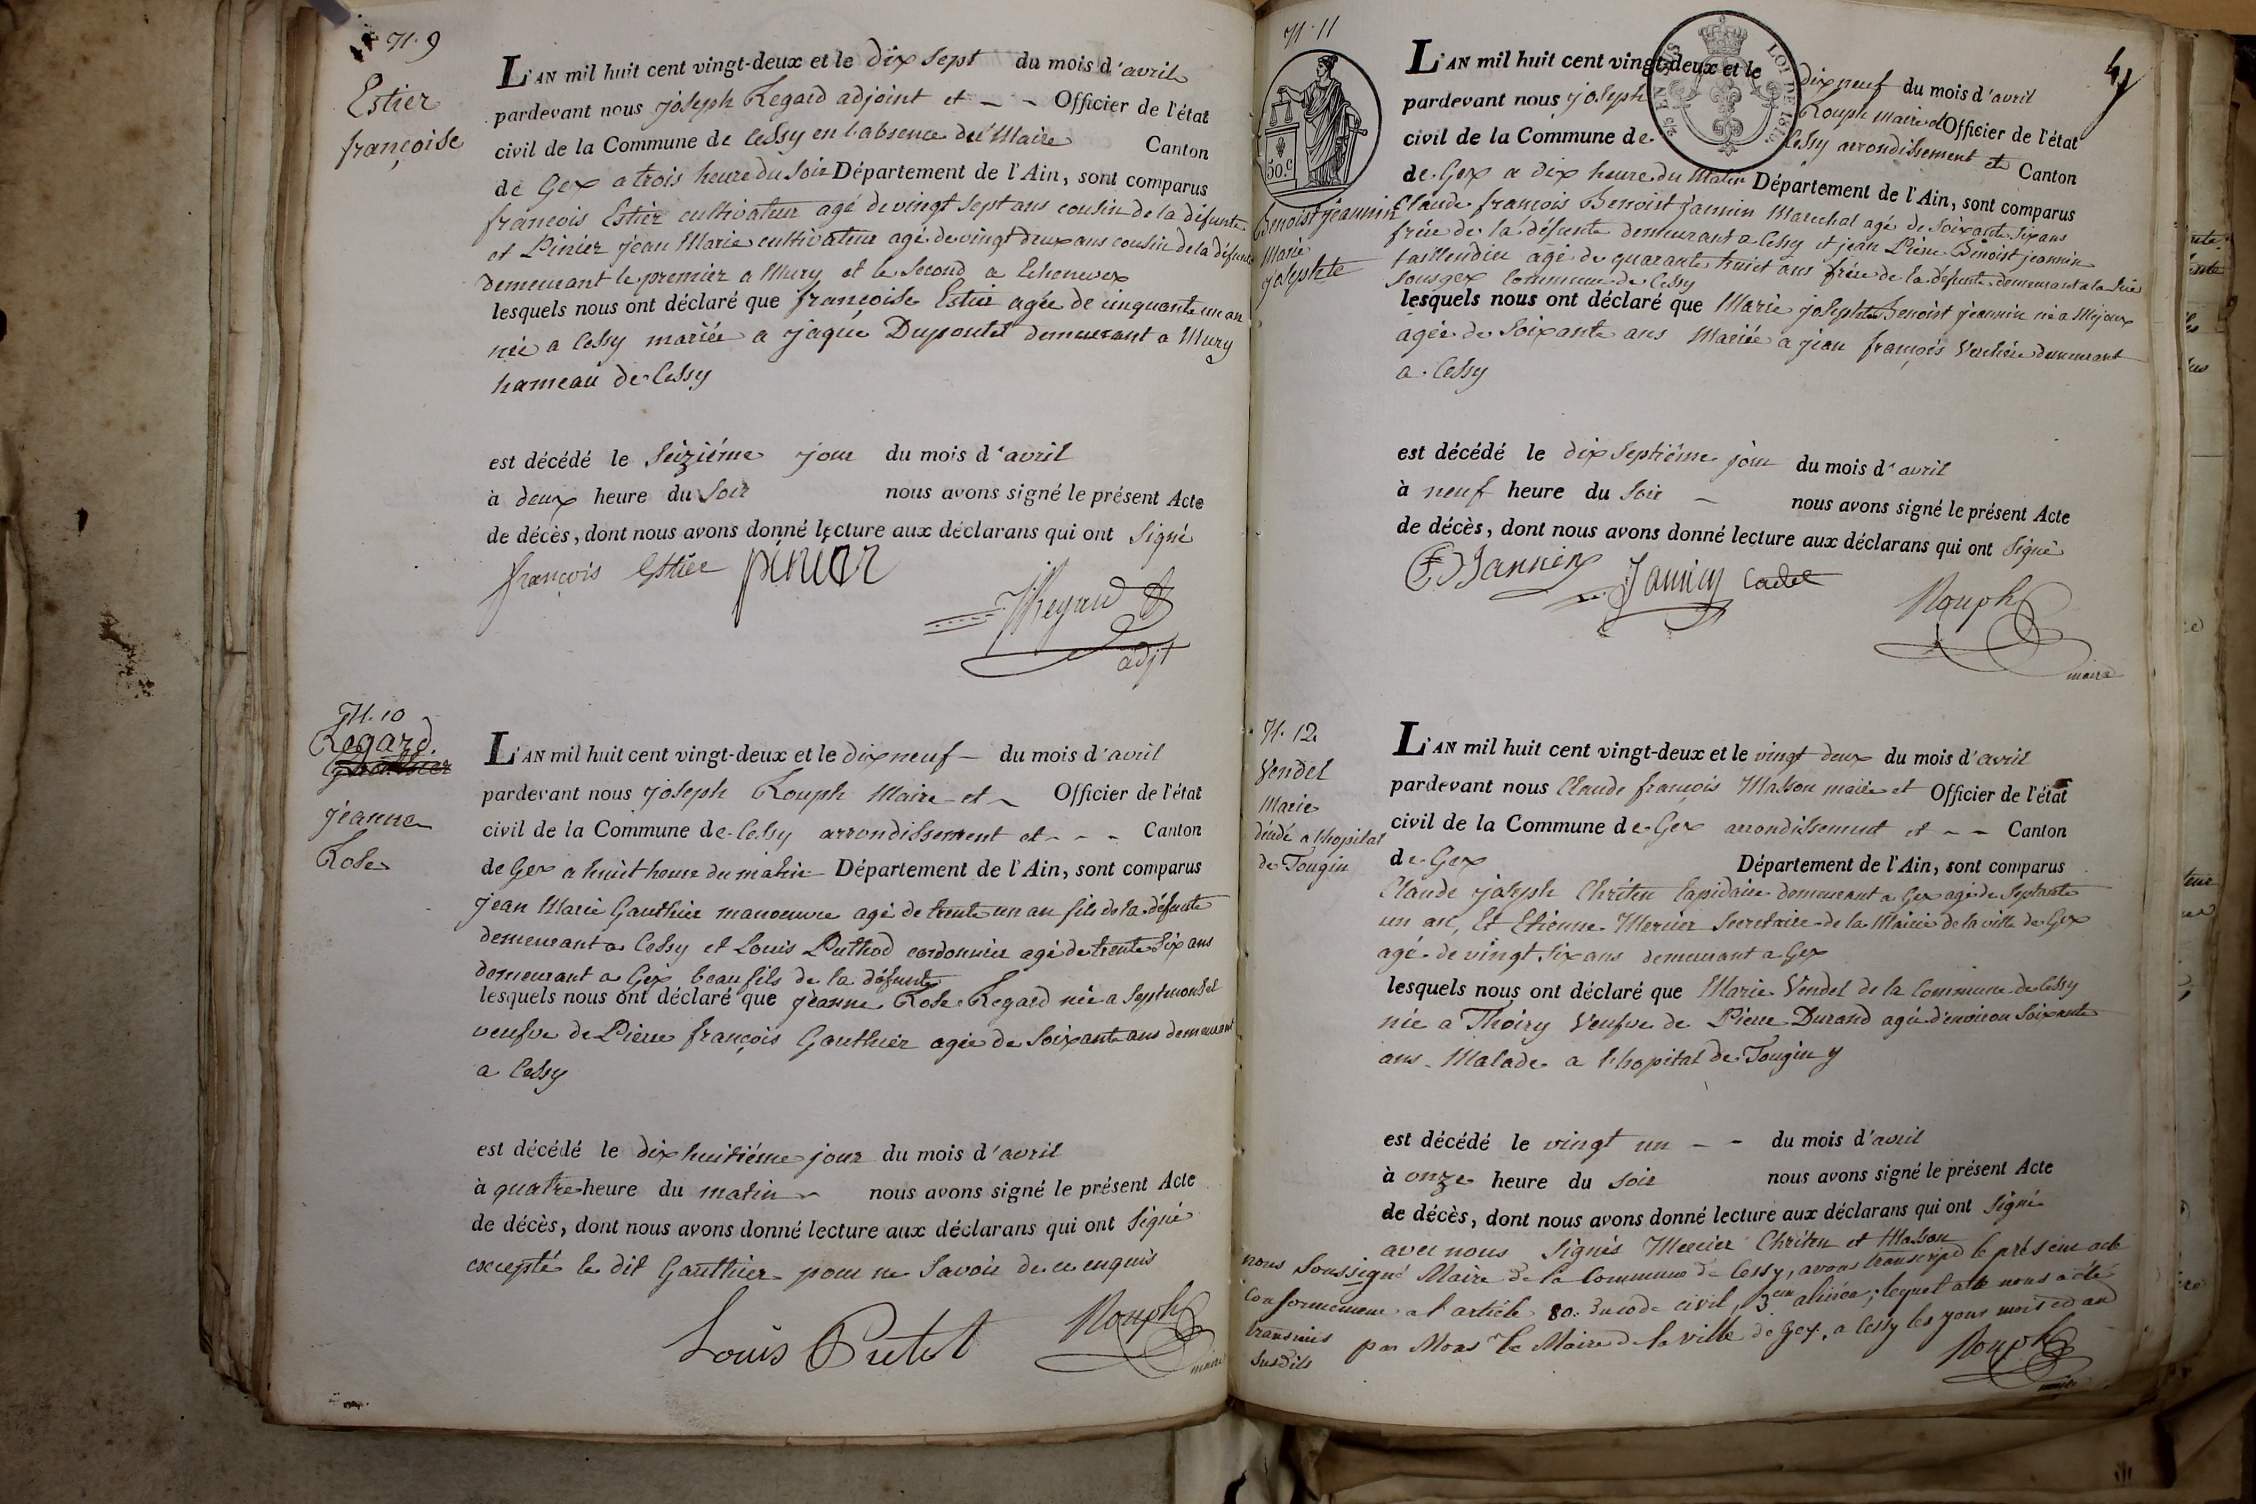 N. 9
Estier
françoise
L'AN mil huit cent vingt-deux et le dix sept du mois d'avril
pardevant nous joseph Regard adjoint et - - Officier de l'état
civil de la Commune de Cessy en l'absence du Maire Canton
de Gex a trois heure du Soir Département de l'Ain, sont comparus
francois Estier cultivateur agé de vingt sept ans cousin de la défunte
et Pinier jean Marie cultivateur agé de vingt deux ans cousin de la défunte
demeurant le premier a Mury et le Second a Echenevex
lesquels nous ont déclaré que françoise Estier agée de cinquante un an
née a Cessy mariée a jaque Dupontet demeurant a Mury
hameau de Cessy
est décédé le Seiziéme jour du mois d'avril
à deux heure du Soir nous avons signé le présent Acte
de décès, dont nous avons donné lecture aux déclarans qui ont Signé
françois Estier pinier
JRegard
adjt
N. 10
Regard
Gauthier
jeanne
Rose
L'AN mil huit cent vingt-deux et le dix neuf - du mois d'avril
pardevant nous joseph Rouph Maire et - Officier de l'état
civil de la Commune de Cessy arrondissement et - - - Canton
de Gex a huit heure du matin Département de l'Ain, sont comparus
jean Marie Gauthier manoeuvre agé de trente un an fils de la défunte
demeurant a Cessy et Louis Puthod cordonnier agé de trente Six ans
demeurant a Gex beau fils de la défunte
lesquels nous ont déclaré que jeanne Rose Regard née a Septmoncel
veufve de Pierre françois Gauthier agée de Soixante ans demeurant
a Cessy
est décédé le dix huitiéme jour du mois d'avril
à quatre heure du matin - nous avons signé le présent Acte
de décès, dont nous avons donné lecture aux déclarans qui ont Signé
excepté le dit Gauthier pour ne Savoir de ce enquis
Louis Putet Rouph
maire
N. 11
EN SUS
LOI DE 1816
50. C
4
Benoist jeannin
Marie
josephte
L'AN mil huit cent vingt-deux et le dix neuf du mois d'avril
pardevant nous joseph Rouph Maire et Officier de l'état
civil de la Commune de Cessy arrondissement et Canton
de Gex a dix heure du Matin Département de l'Ain, sont comparus
Claude françois Benoist jannin Marechal agé de Soixante Six ans
frére de la défunte demeurant a Cessy et jean Pierre Benoist jeannin
taillendier agé de quarante huit ans frére de la défunte demeurant a la
Sousgex Commune de Cessy
lesquels nous ont déclaré que Marie josephte Benoist jeannin née a Mijoux
agée de Soixante ans Mariée a jean françois Verchére demeurant
a Cessy
est décédé le dix septiéme jour du mois d'avril
à neuf heure du Soir - nous avons signé le présent Acte
de décès, dont nous avons donné lecture aux déclarans qui ont Signé
Jannin Cadet
Rouph
maire
N. 12
Vendel
Marie
décédé a l'hopital
de Tougin
L'AN mil huit cent vingt-deux et le vingt deux du mois d'avril
pardevant nous Claude françois Masson maire et Officier de l'état
civil de la Commune de Gex arrondissement et - - Canton
de Gex Département de l'Ain, sont comparus
Claude joseph Chriten Lapidaire demeurant a Gex agé de Septante
un an, Et Etienne Mercier Secretaire de la Mairie de la ville de Gex
agé de vingt Six ans demeurant a Gex
lesquels nous ont déclaré que Marie Vendel de la Commune de Cessy
née a Thoiry Veufve de Pierre Durand agée d'environ Soixante
ans Malade a l'hopital de Tougin y
est décédé le vingt un - - du mois d'avril
à onze heure du Soir nous avons signé le présent Acte
de décès, dont nous avons donné lecture aux déclarans qui ont Signé
avec nous Signés Mercier Chriten et Masson
nous Soussigné Maire de la Commune de Cessy, avons transcript le présent acte
Conformement a l'article 80. du code civil, 3em alinéa; lequel acte nous a été
transmis par Monsr le Maire de la ville de Gex, a Cessy les jour mois et an
Susdits
Rouph
maire